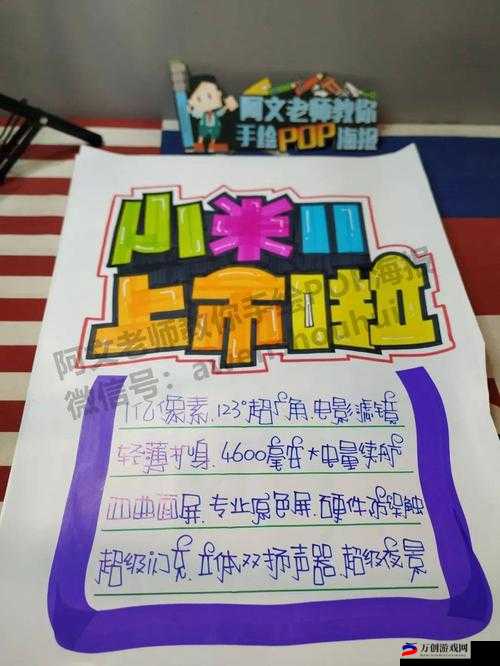 阿文老师教你
手绘POP海报
小米11
上市啦
阿文老师教你手绘POP海报
微信号：
1亿像素.123°超广角.电影滤镜
轻薄机身.4600毫安大电量续航
四曲面屏.专业原色屏.硬件防误触
超级闪充.立体双扬声器.超级夜景
万创游戏网